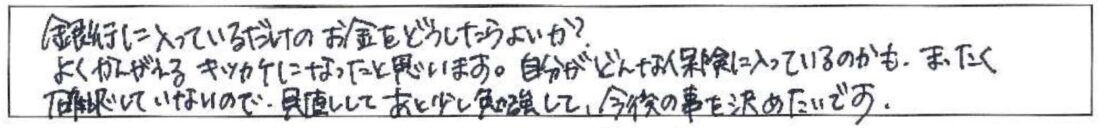 銀行に入っているだけのお金をどうしたらよいか?
よくかんがえるキッカケになったと思います。自分がどんな保険に入っているのかも、まったく
確認していないので、見直しして あと少し勉強して、今後の事を決めたいです。